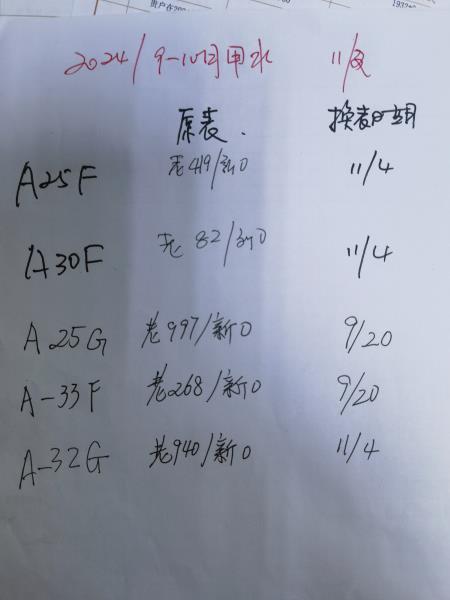 2024/9-10月用水 11/交
原表. 换表时间
A25F 老419/新0 11/4
A30F 老82/新0 11/4
A25G 老997/新0 9/20
A-33F 老268/新0 9/20
A-32G 老940/新0 11/4